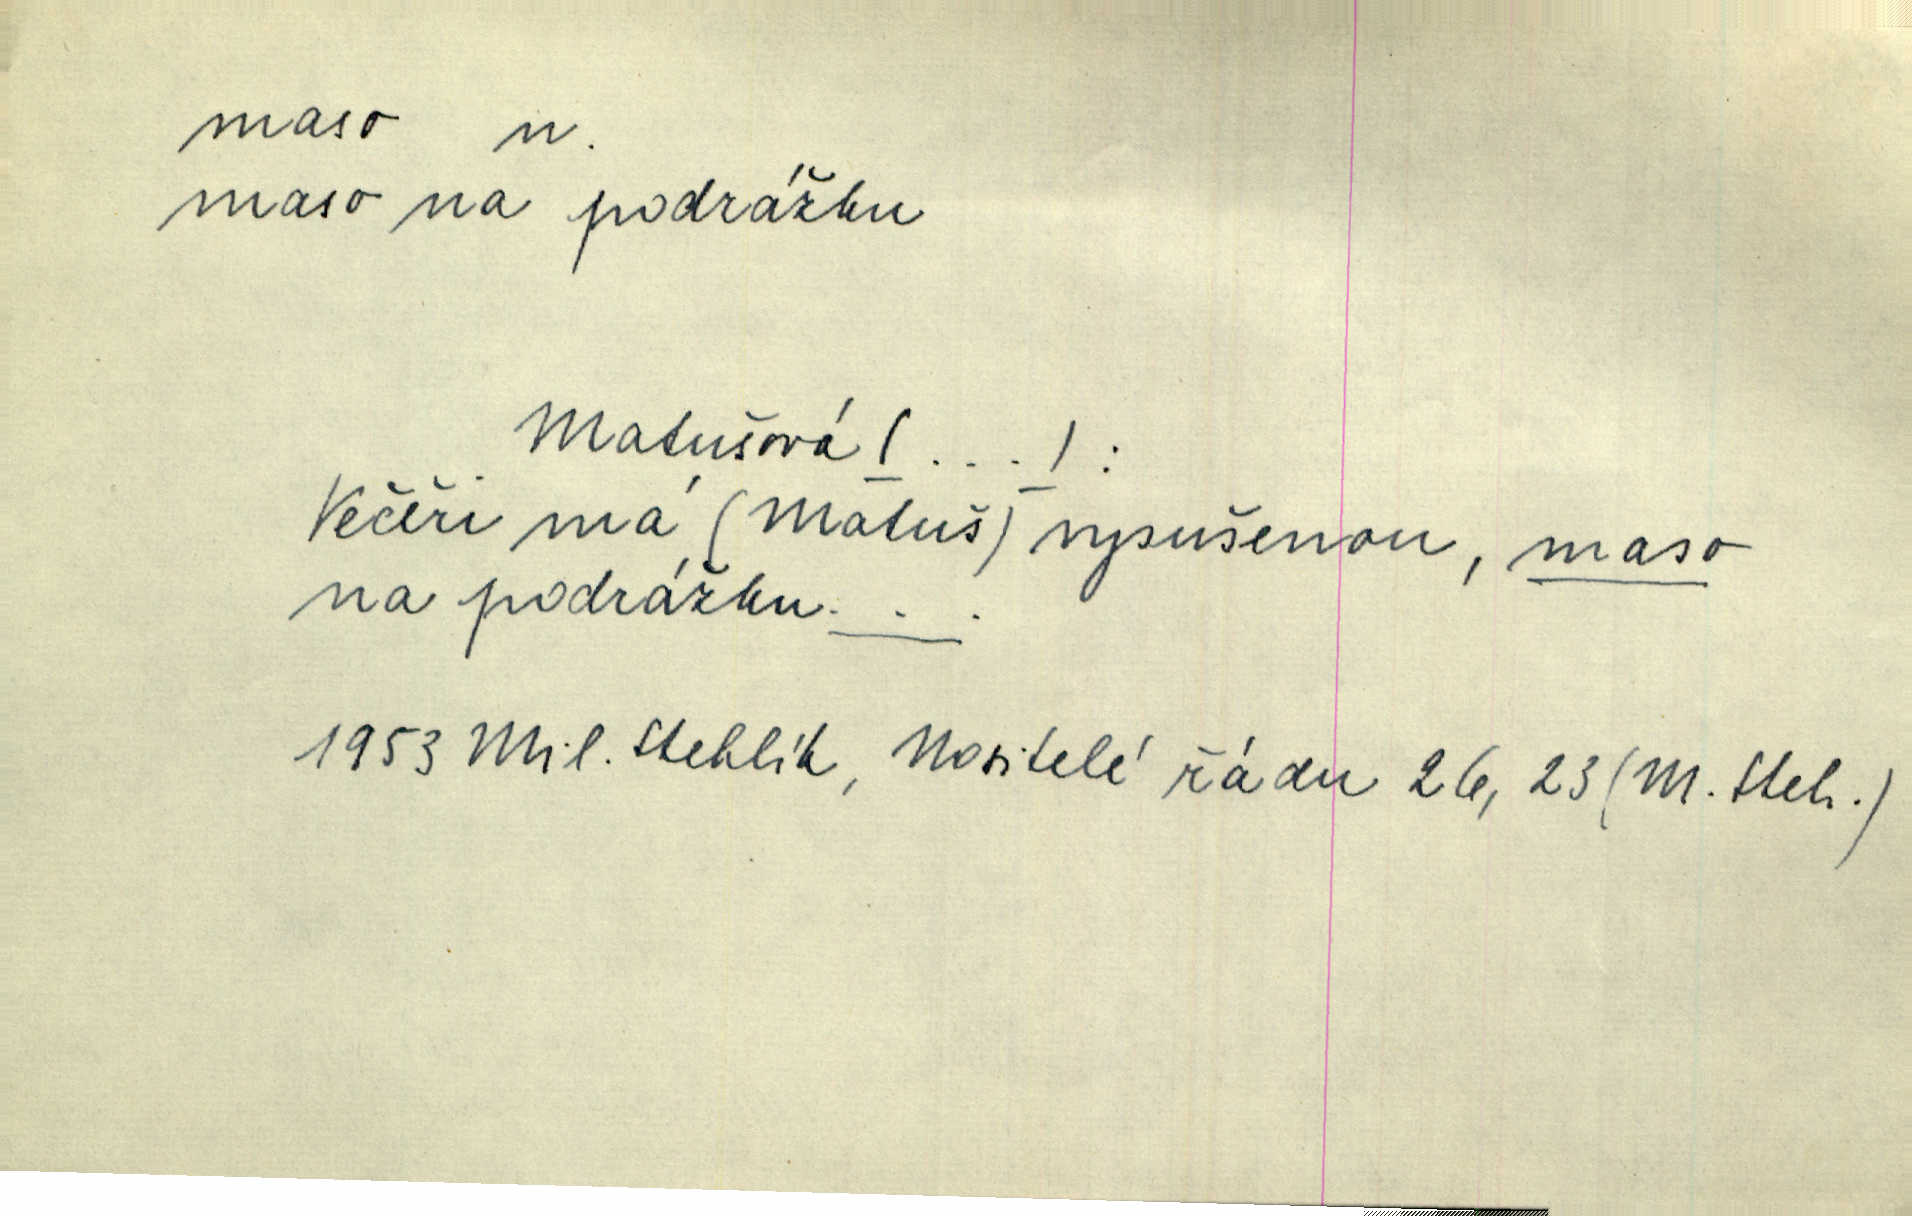 maso n.
maso na podrážku
Matušová (...) :
Večeři má (Matuš) vysušenou, maso
na podrážku...
1953 Mil. Stehlík, Nositelé řádu 26, 23 (M. Steh.)